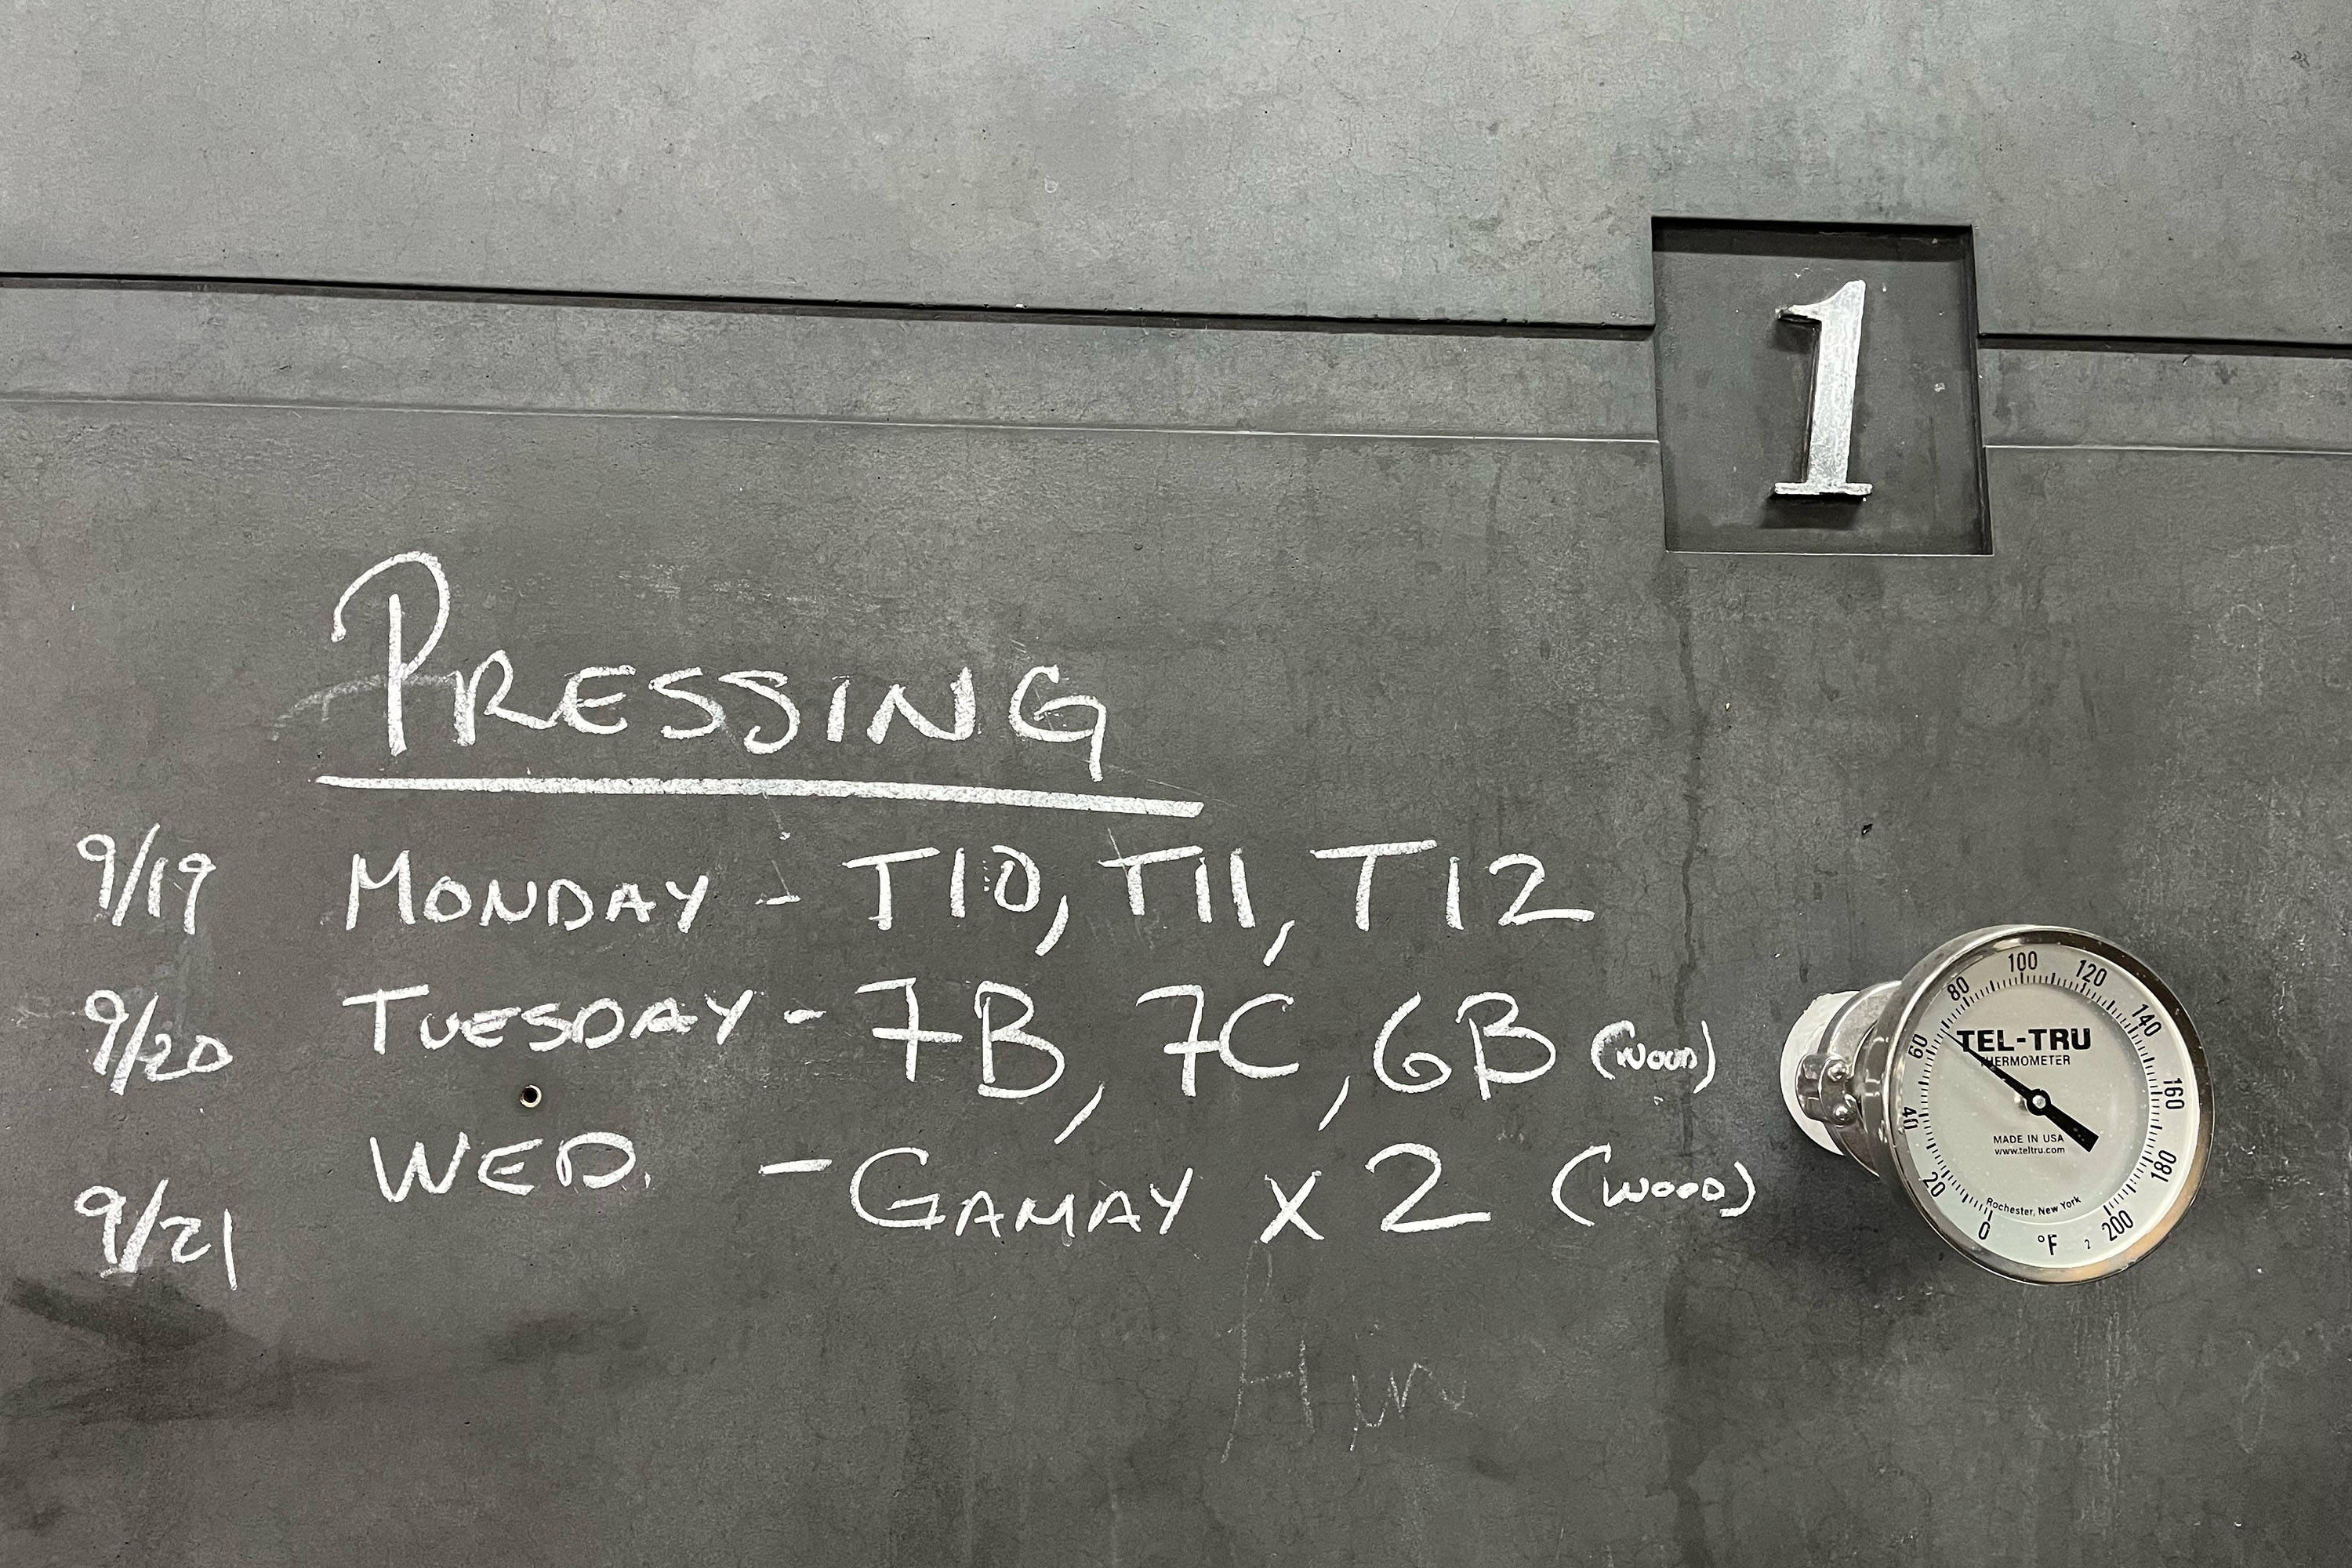 1
PRESSING
9/19 MONDAY - T10, T11, T12
9/20 TUESDAY - 7B, 7C, 6B (WOOD)
9/21 WED. - GAMAY x 2 (WOOD)
0 20 40 60 80 100 120 140 160 180 200
TEL-TRU
THERMOMETER
MADE IN USA
www.teltru.com
Rochester, New York
°F 2